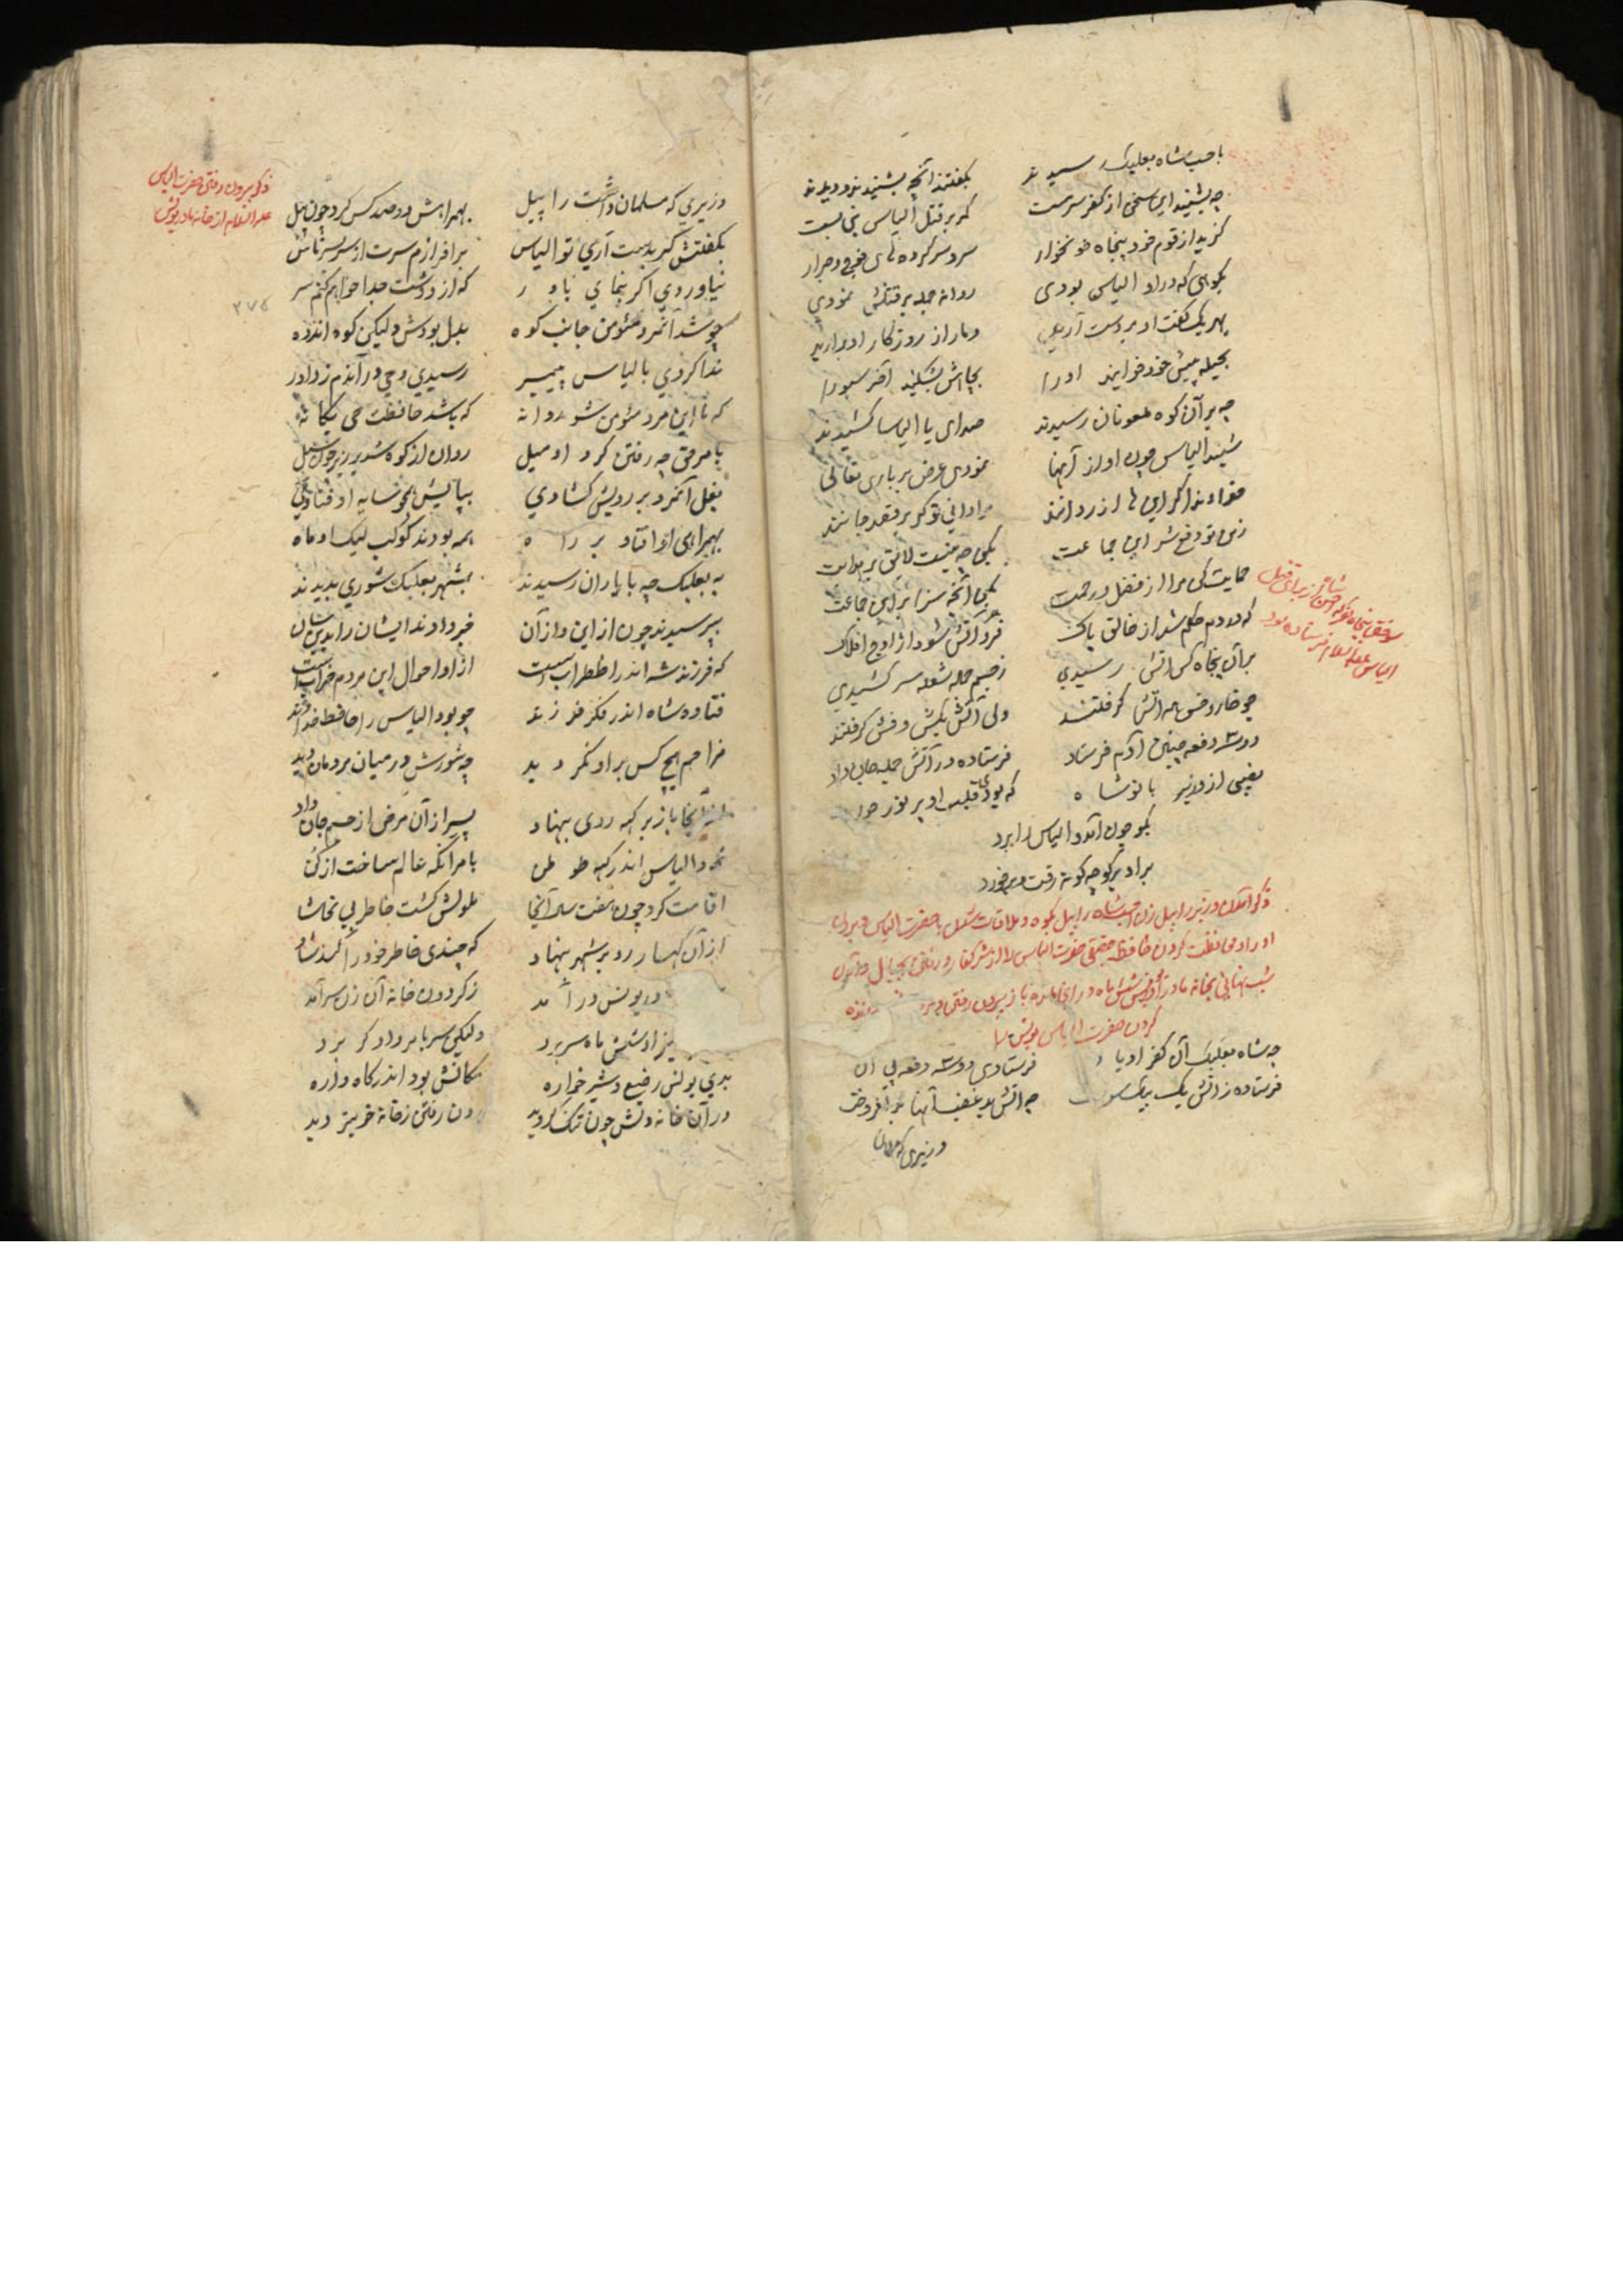 باحب شاه بعلبک رسیدند
بگفتند آنچه بشنیدند و دیدند
چه بشنید این سخن از کفر سرمست
کمر بر قتل الیاس نبی بست
گزید از قوم خود پنجاه خونخوار
سر و سرکرده های فوج و جرار
بکوهی که در او الیاس بودی
روانه جمله بر قتلش نمودی
بهر یک گفت او بدست آرید
دمار از روزگار او برآرید
بحیله پیش خود خوانید او را
بجایش بشکنید آخر سبو را
چه بر آن کوه ملعونان رسیدند
صدای یا الیاسا کشیدند
شنید الیاس چون آواز آنها
نمودی عرض بر باری تعالی
خداوندا گر این ها
تو گر بر قصد جانند
ز من تو دفع شر این جماعت
بکن چه نیست لائق بر
حمایت کن مرا از فضل و رحمت
بکن آنچه سزا بر این جماعت
که در دم حکم شد از خالق پاک
فرو آتش شود از اوج افلاک
بر آن پنجاه کس آتش رسیدی
ز جسم جمله شعله سر کشیدی
چو خار و خس همه آتش گرفتند
ولی آتش بکش و فش گرفتند
دو سه دفعه چنین آدم فرستاد
فرستاده در آتش جمله جان داد
یقین از وزیر با تو شاه
که بودی قلب او پر نور
بگو چون آمد و الیاس را برد
برادر بر کوچه گونه رفت و برخورد
ذکر آمدن وزیر راپیل زن احب شاه راپیل بکوه و ملاقات شدن با حضرت الیاس و بردن
او را و محافظت کردن حافظ حقیقی حضرت الیاس را از شر کفار و رفتن بجبال و آمدن
شب پنهانی بخانه مادر یونس شش ماه در آن خانه باز بیرون رفتن و زنده
کردن حضرت الیاس یونس را
چه شاه بعلبک آن کفر
فرستادی دو سه دفعه پی آن
فرستاده ز آتش یک بیک سوخت
چه آتش بد غضب آنها برافروخت
وزیری که مسلمان
سوختن پنجاه نفر که احب شاه از برای قتل
الیاس علیه السلام فرستاده بود
وزیری که مسلمان داشت راپیل
بهمراهش دو صد کس کرد چون پیل
بگفتش گر بدست آری تو الیاس
برافرازم سرت از سر بسر ناس
نیاوردی اگر بنمای باور
که از دوشت جدا خواهم کنم سر
چو شد آنمرد مؤمن جانب کوه
بدل بودش ولیکن کوه اندوه
ندا کردی بالیاس پیمبر
رسیدی وحی در آندم ز داور
که با این مرد مؤمن شو روانه
که باشد حافظت حی یگانه
بامر حق چه رفتن کرد او میل
روان از کوه شد بر زیر چون سیل
بغل آنمرد بر رویش گشادی
بپایش همچو سایه او فتادی
بهمراهی او افتاد بر راه
همه بودند کوکب لیک او ماه
به بعلبک چه با یاران رسیدند
بشهر بعلبک شوری بدیدند
بپرسیدند چون از این و از آن
خبر دادند ایشان را بدینسان
که فرزند شه اندر اضطراب است
از او احوال این مردم خراب است
فتاده شاه اندر فکر فرزند
چو بود الیاس را حافظ خداوند
مزاحم هیچ کس بر او نگردید
چه شورش در میان مردمان دید
از آنجا باز بر که روی بنهاد
پسر از آن مرض از جسم جان داد
نمود الیاس اندر که طوطن
بامر آنکه عالم ساخت از کن
اقامت کرد چون هفت سال آنجا
ملولش گشت خاطر بی تحاشا
از آن کهسار رو بر شهر بنهاد
که چندی خاطر خود را کند شاد
در یونس درآمد
ز گردون خانه آن زن سرآمد
نیز او شش ماه سر برد
ولیکن سر بامر دادگر برد
بدی یونس رضیع و شیرخواره
مکانش بود اندر گاهواره
در آن خانه دلش چون تنگ گردید
برون رفتن ز خانه خوبتر دید
ذکر بیرون رفتن حضرت الیاس
علیه السلام از خانه مادر یونس
۳۷۵